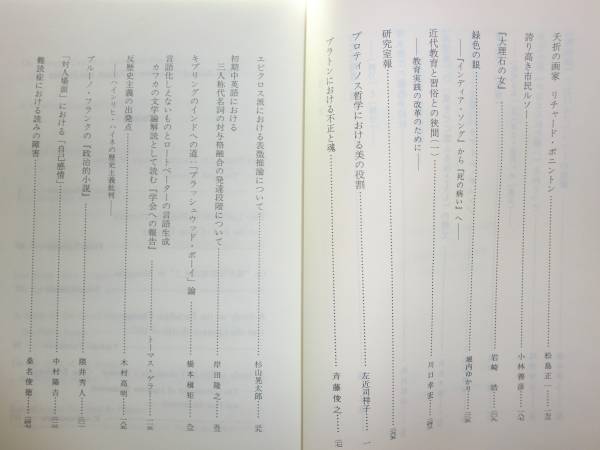 夭折の画家　リチャード・ボニントン……松島正一……
誇り高き市民ルソー……小林善彦……
『大理石の女』……岩崎　浩……
緑色の眼
――『インディア・ソング』から『死の病い』へ――……堀内ゆかり……
近代教育と習俗との狭間（一）
――教育実践の改革のために――……川口幸宏……
研究室報……
プロティノス哲学における美の役割……左近司祥子……一
プラトンにおける不正と魂……斉藤俊之……
エピクロス派における表徴推論について……杉山晃太郎……
初期中英語における
三人称代名詞の対与格融合の発達段階について……岸田隆之……
キプリングのインドへの道――「ブラッシュウッド・ボーイ」論……橋本槇矩……
言語化しえないものとロートペーターの言語生成
カフカの文学論解読として読む『学会への報告』……トーマス・ゲラー……
反歴史主義の出発点
――ハインリヒ・ハイネの歴史主義批判――……木村高明……
ブルーノ・フランクの『政治的小説』……隈井秀人……
「対人場面」における「自己感情」……中村陽吉……
難読症における読みの障害……桑名俊徳……